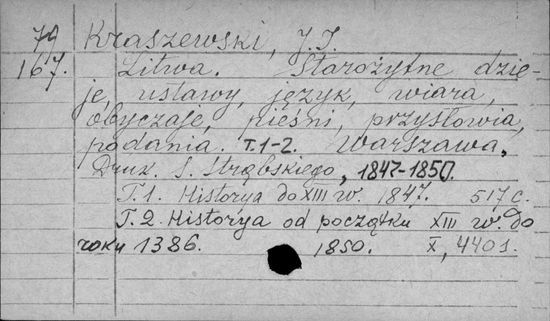 79 Kraszewski, J.I.
167. Litwa. Starożytne dzie-
je, ustawy, język, wiara,
obyczaje, pieśni, przysłowia,
podania. T.1-2. Warszawa,
Druk. S. Strąbskiego, 1847-1850.
T.1. Historya do XIII w. 1847. 517 c.
T.2. Historya od początku XIII w. do
roku 1386. 1850. X, 440 s.